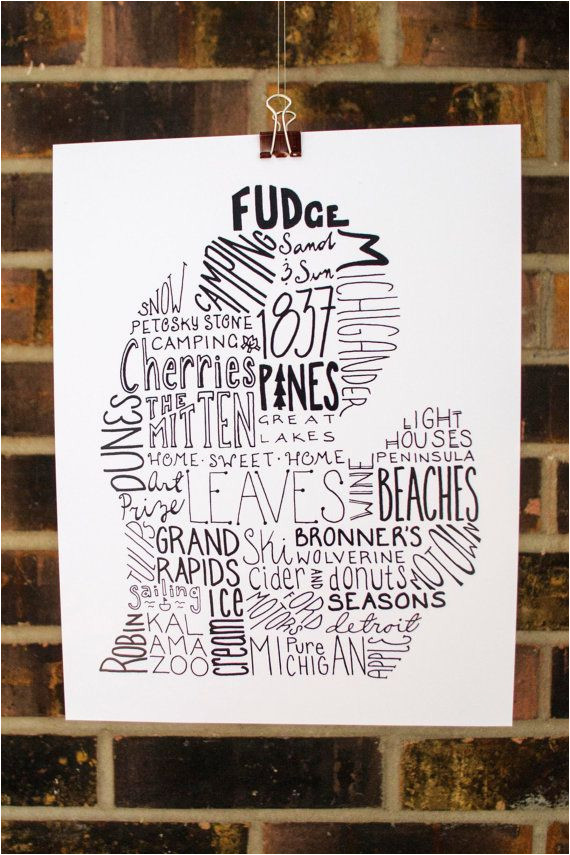 FUDGE
CAMPING
Sand
& Sun
MICHIGANDER
SNOW
PETOSKY STONE
CAMPING
1837
Cherries
PINES
DUNES
THE
MITTEN
GREAT
LAKES
LIGHT
HOUSES
HOME · SWEET · HOME
PENINSULA
Art
Prize
LEAVES
WINE
BEACHES
TULIPS
GRAND
RAPIDS
Ski
BRONNER'S
WOLVERINE
MOTOWN
Cider
AND
donuts
Sailing
ICE
cream
FORD
MOTORS
SEASONS
ROBIN
KAL
AMA
ZOO
detroit
Pure
MICHIGAN
APPLE